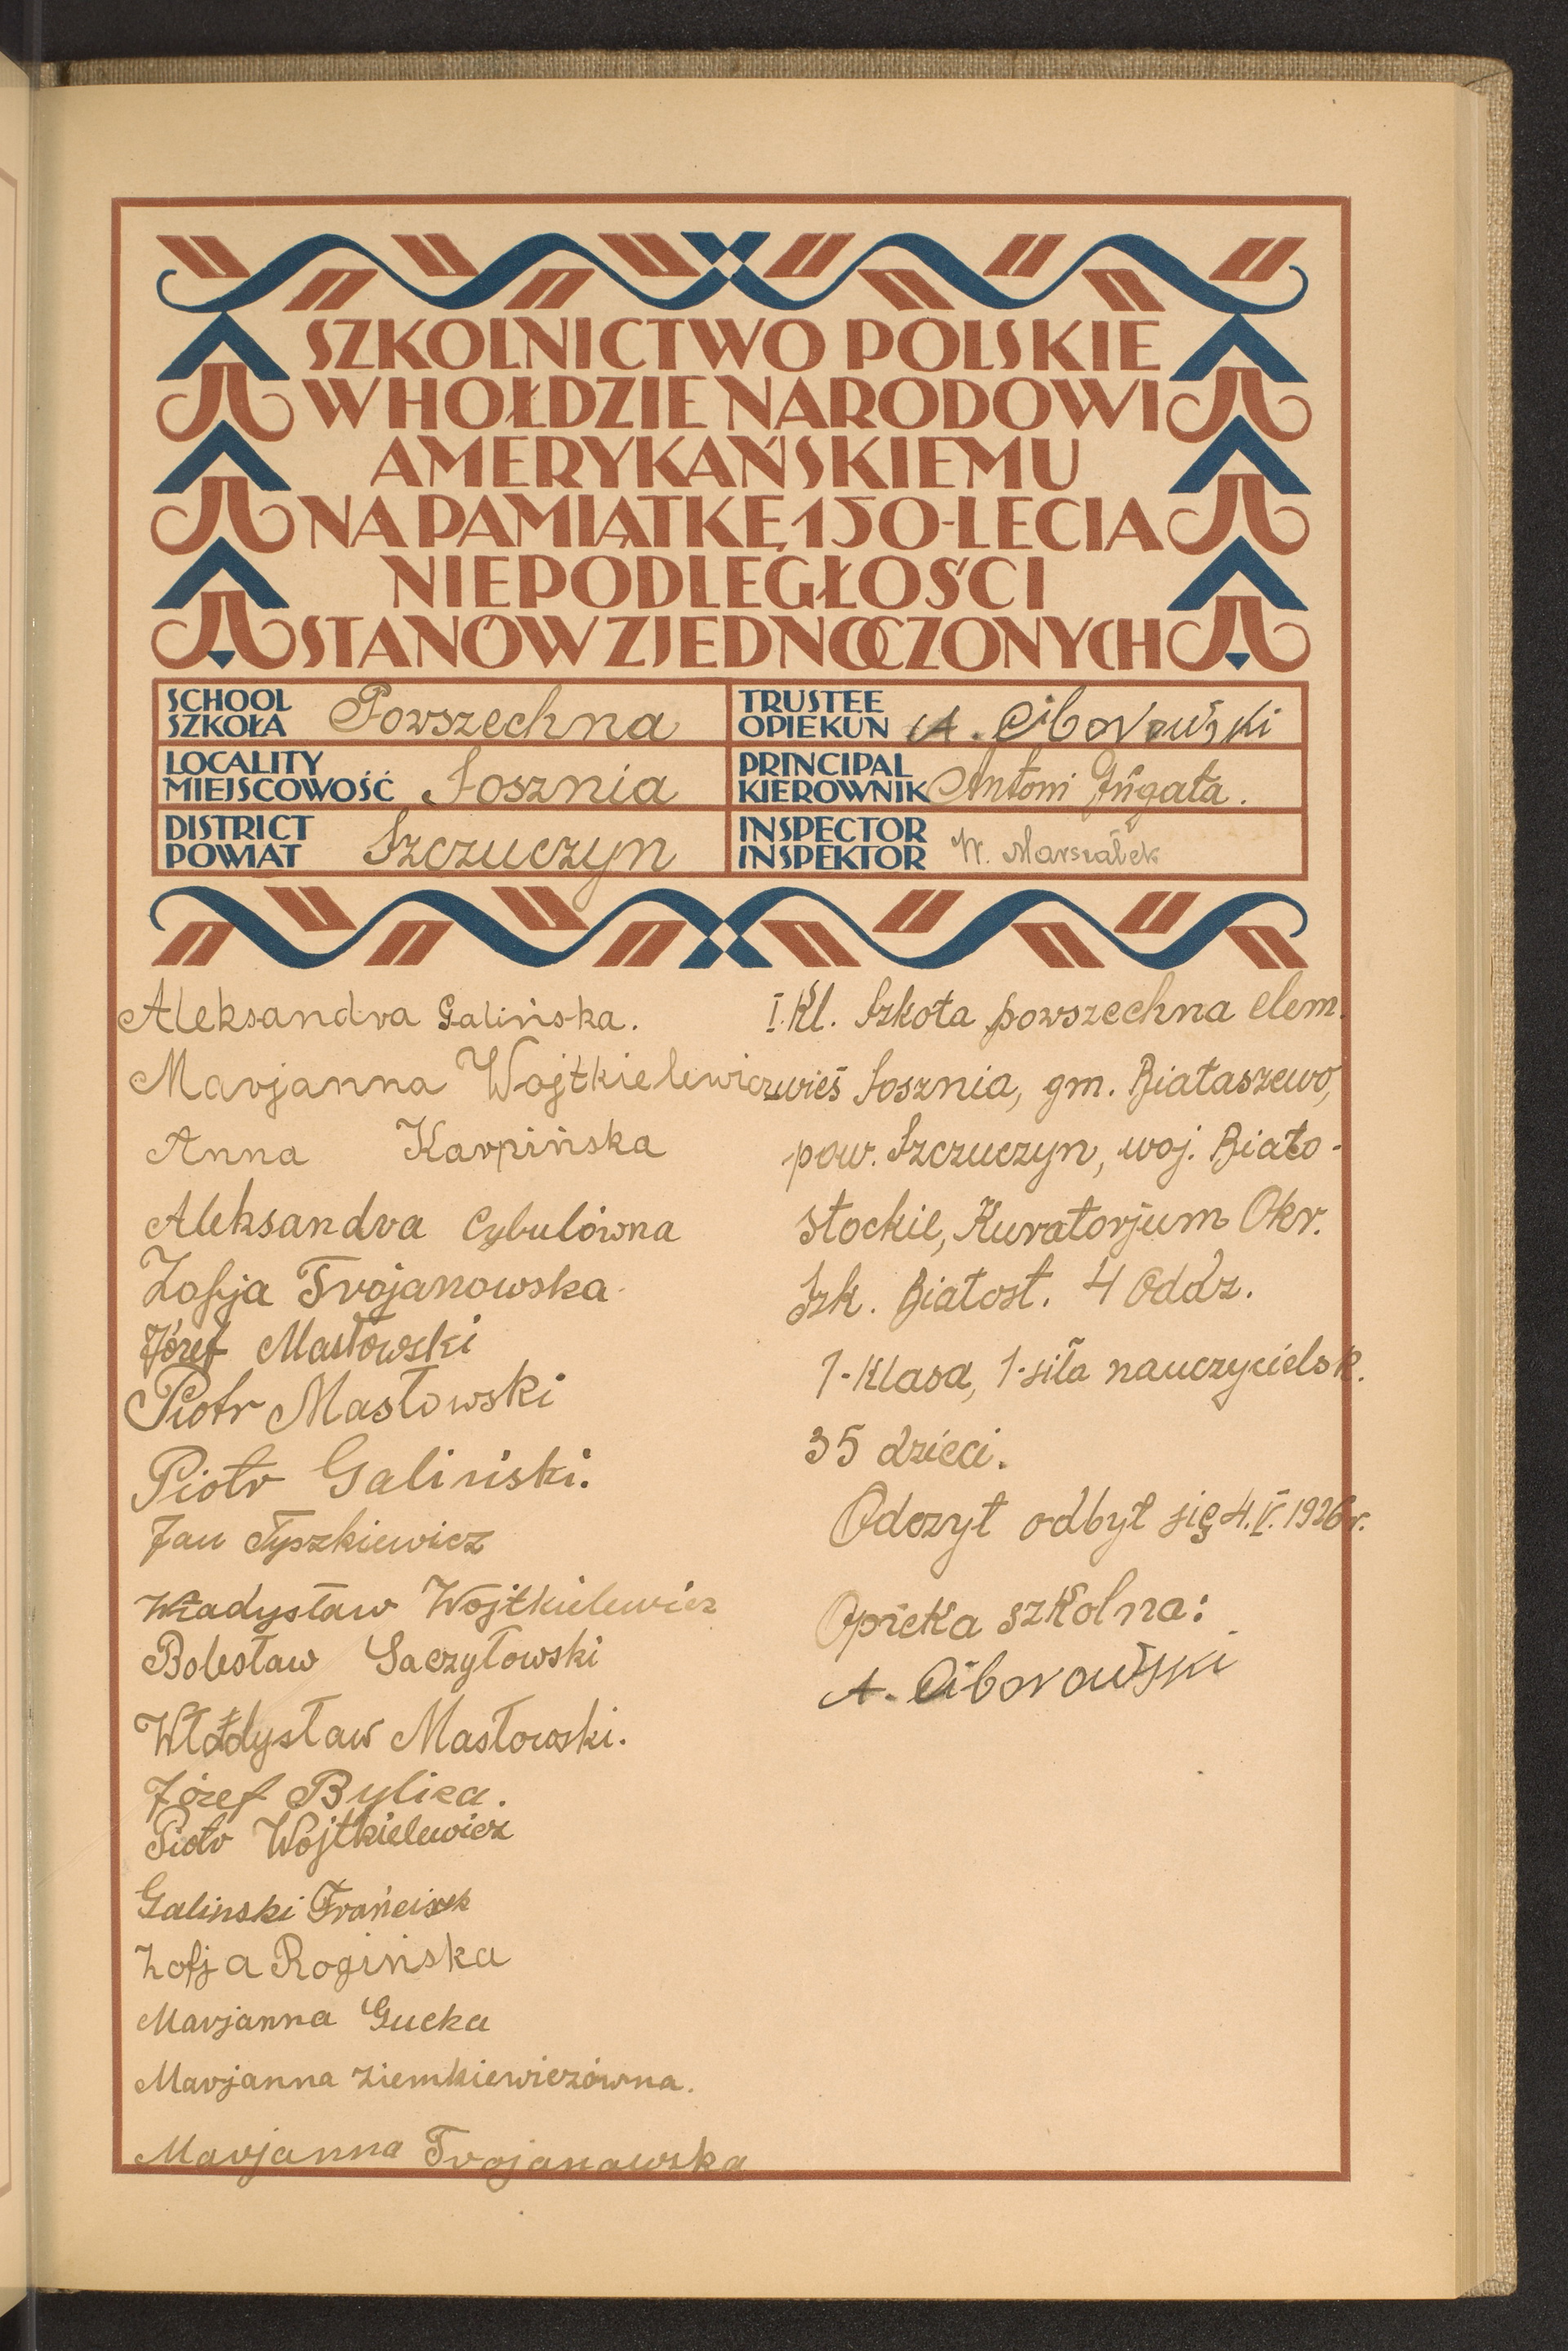 SZKOLNICTWO POLSKIE
W HOŁDZIE NARODOWI
AMERYKAŃSKIEMU
NA PAMIĄTKĘ 150-LECIA
NIEPODLEGŁOŚCI
STANÓW ZJEDNOCZONYCH
SCHOOL
SZKOŁA Powszechna
TRUSTEE
OPIEKUN A. Ciborowski
LOCALITY
MIEJSCOWOŚĆ Sosznia
PRINCIPAL
KIEROWNIK Antoni
DISTRICT
POWIAT Szczuczyn
INSPECTOR
INSPEKTOR W. Marszałek
Aleksandra Galińska.
Marjanna Wojtkielewicz
Anna Karpińska
Aleksandra Cybulówna
Zofja Trojanowska
Józef Masłowski
Piotr Masłowski
Piotr Galiński.
Jan Tyszkiewicz
Władysław Wojtkielewicz
Bolesław Saczyłowski
Władysław Masłowski.
Józef Bylica.
Piotr Wojtkielewicz
Galinski Frańciszek
Zofja Rogińska
Marjanna Gucka
Marjanna Ziemkiewiczówna.
Marjanna Trojanowska
I. Kl. Szkoła powszechna elem.
wieś Sosznia, gm. Białaszewo,
pow. Szczuczyn, woj. Biało-
stockie, Kuratorjum Okr.
Szk. Białost. 4 Oddz.
1-klasa, 1-siła nauczycielsk.
35 dzieci.
Odczyt odbył się 4.V.1926r.
Opieka szkolna:
A. Ciborowski